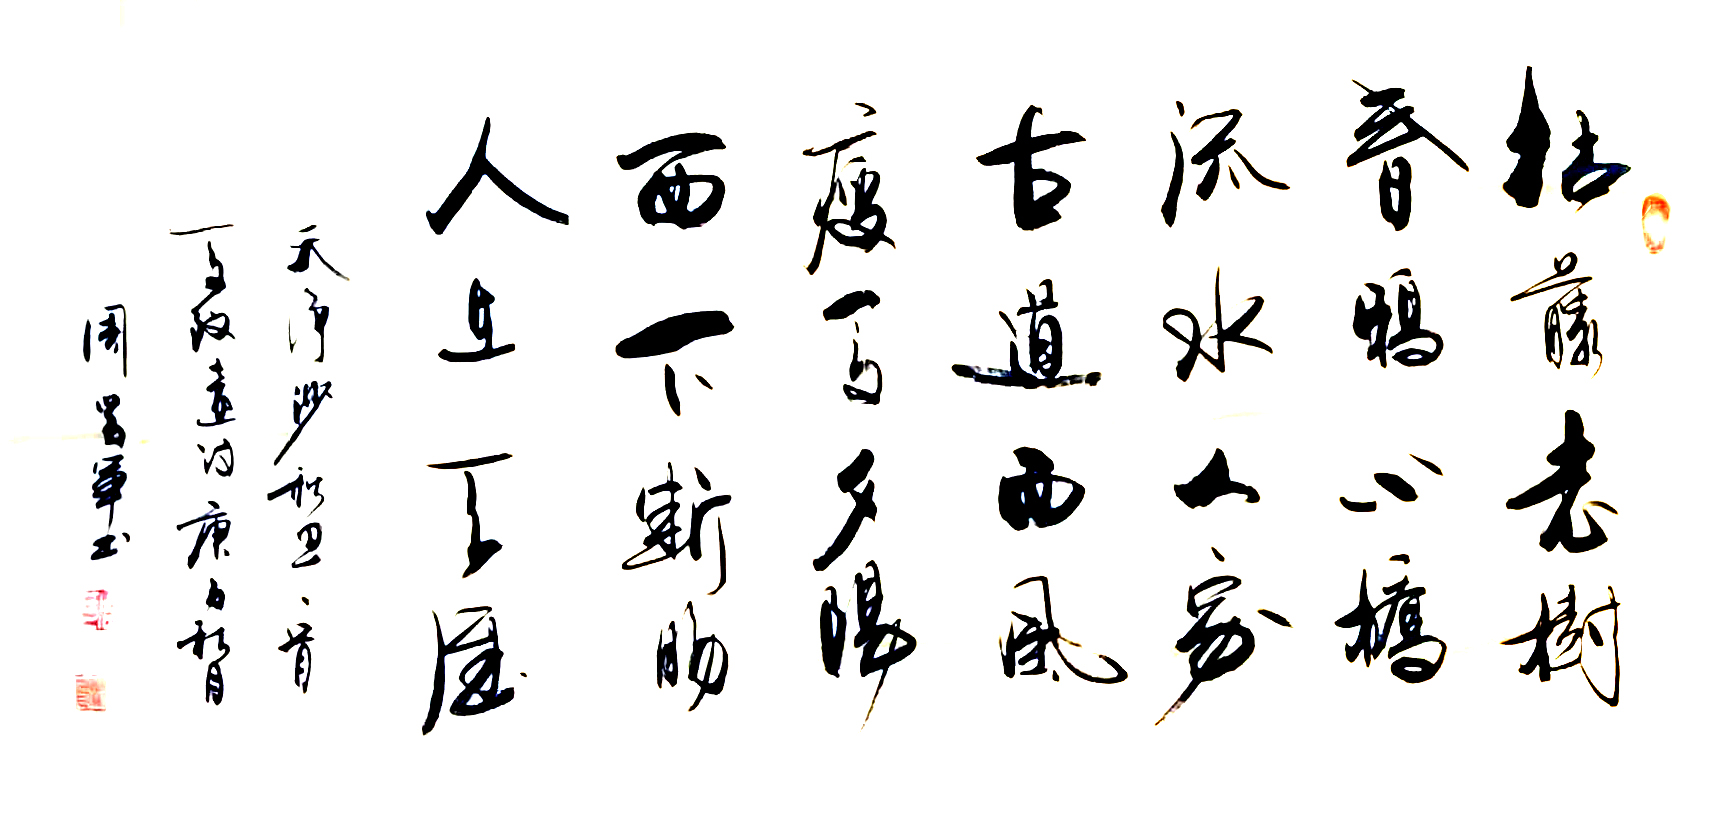 枯藤老樹
昏鴉小橋
流水人家
古道西風
瘦馬夕陽
西下斷腸
人在天涯
天淨沙秋思一首
馬致遠詩庚子秋月
周昌軍书